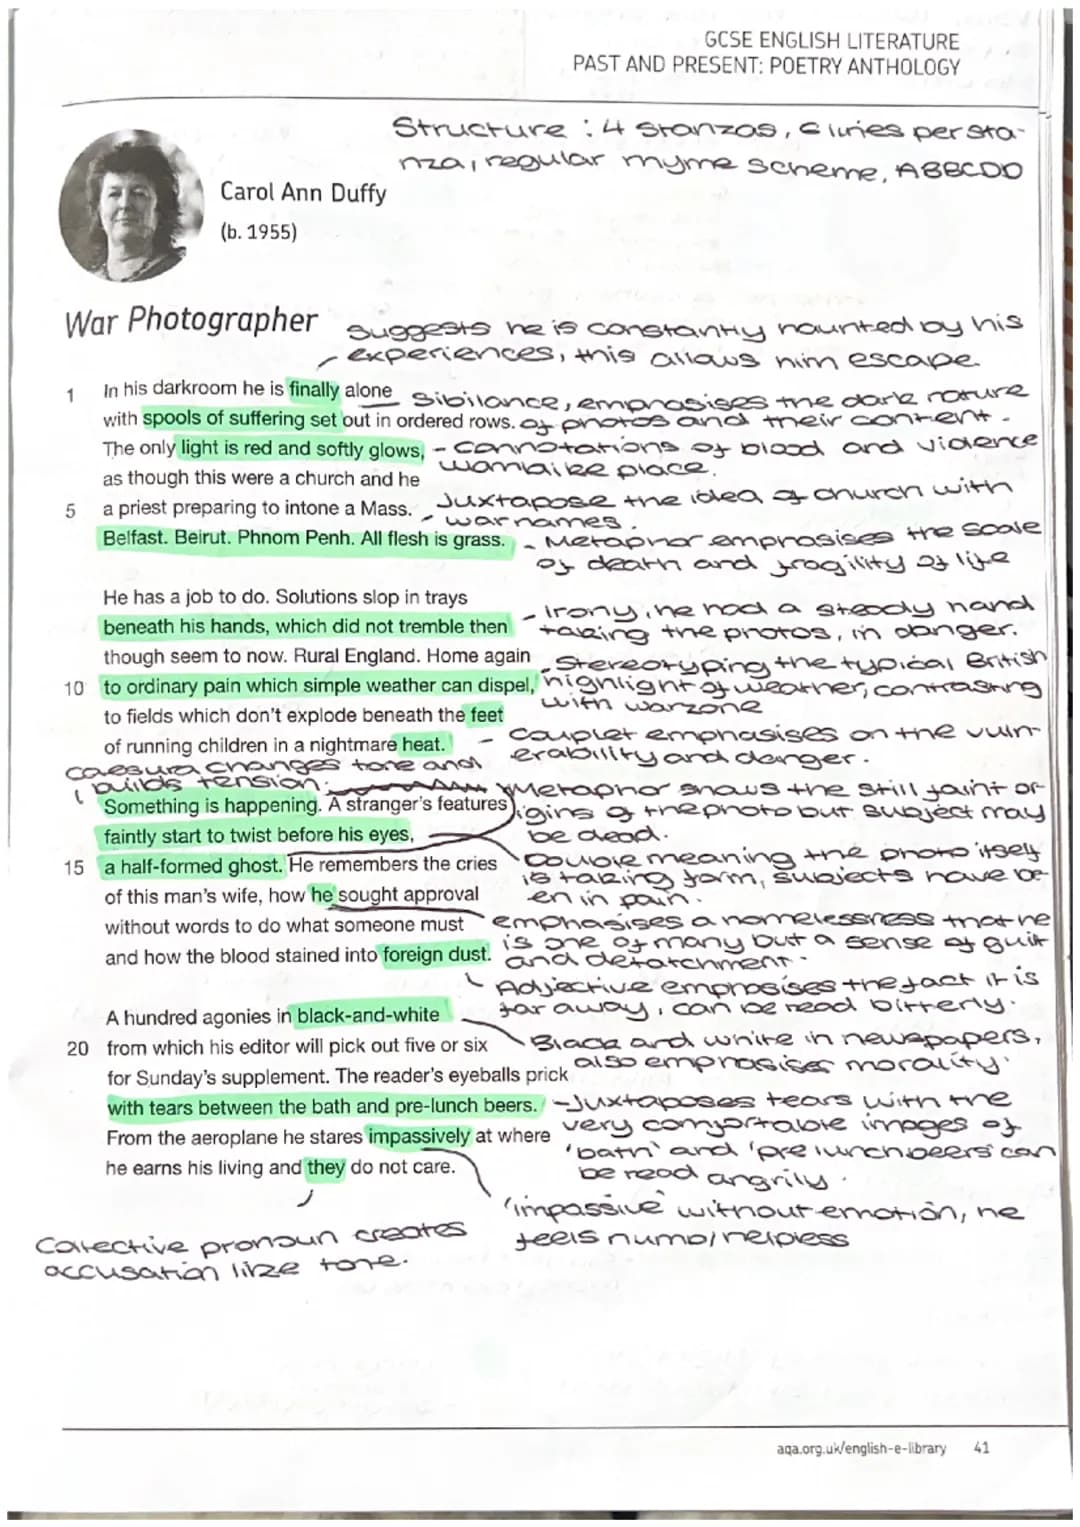 GCSE ENGLISH LITERATURE
PAST AND PRESENT: POETRY ANTHOLOGY
Structure : 4 stanzas, 6 lines per sta-
nza, regular rhyme scheme, ABBCDD
Carol Ann Duffy
(b. 1955)
War Photographer
suggests he is constantly haunted by his
experiences, this allows him escape
1 In his darkroom he is finally alone
Sibilance, emphasises the dark nature
with spools of suffering set out in ordered rows.
of photos and their content.
The only light is red and softly glows,
- connotations of blood and violence
womblike place.
as though this were a church and he
5 a priest preparing to intone a Mass.
Juxtapose the idea of church with
war names.
Belfast. Beirut. Phnom Penh. All flesh is grass.
- Metaphor emphasises the scale
of death and fragility of life
He has a job to do. Solutions slop in trays
beneath his hands, which did not tremble then
- Irony, he had a steady hand
taking the photos, in danger.
though seem to now. Rural England. Home again
10 to ordinary pain which simple weather can dispel,
- Stereotyping the typical British
highlight of weather, contrasting
with warzone
to fields which don't explode beneath the feet
of running children in a nightmare heat.
- Couplet emphasises on the vuln-
erability and danger.
caesura changes tone and
builds tension.
Something is happening. A stranger's features
faintly start to twist before his eyes,
Metaphor shows the still faint or-
igins of the photo but subject may
be dead.
15 a half-formed ghost. He remembers the cries
Double meaning the photo itself
is taking form, subjects have be-
en in pain.
of this man's wife, how he sought approval
without words to do what someone must
emphasises a namelessness that he
is one of many but a sense of guilt
and detatchment.
and how the blood stained into foreign dust.
Adjective emphasises the fact it is
far away, can be read bitterly.
A hundred agonies in black-and-white
20 from which his editor will pick out five or six
Black and white in newspapers,
also emphasises morality.
for Sunday's supplement. The reader's eyeballs prick
with tears between the bath and pre-lunch beers.
- Juxtaposes tears with the
very comfortable images of
'bath' and 'pre lunch beers' can
be read angrily.
From the aeroplane he stares impassively at where
he earns his living and they do not care.
'impassive' without emotion, he
feels numb/helpless
Collective pronoun creates
accusation like tone.
aqa.org.uk/english-e-library 41